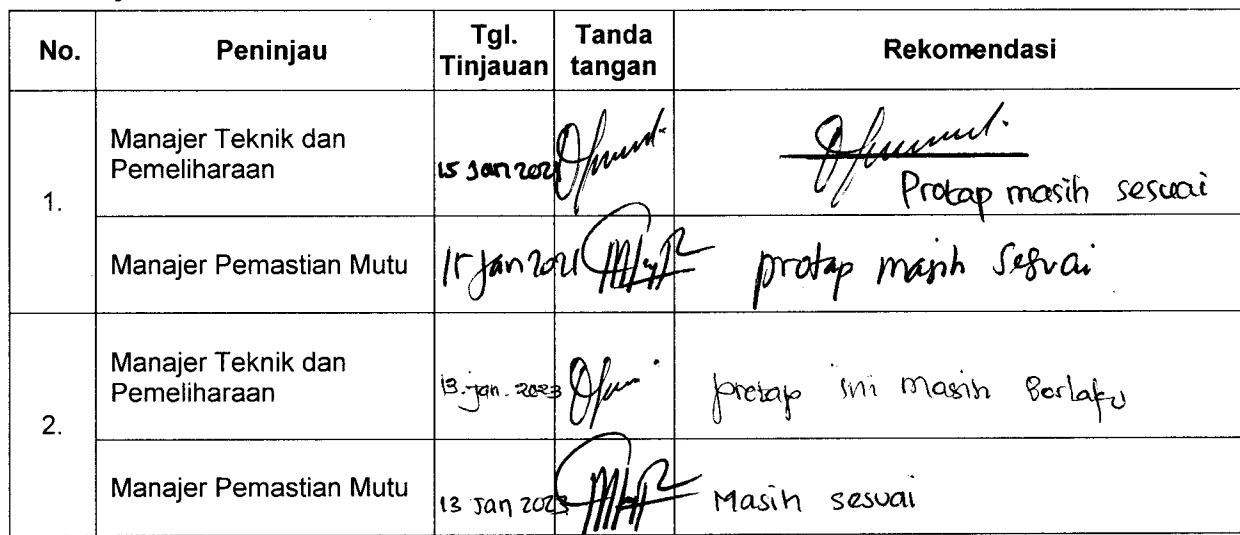 No. Peninjau Tgl. Tinjauan Tanda tangan Rekomendasi
1.
Manajer Teknik dan
Pemeliharaan
15 Jan 2021
Protap masih sesuai
Manajer Pemastian Mutu
15 Jan 2021
protap masih sesuai
2.
Manajer Teknik dan
Pemeliharaan
13. Jan. 2023
protap ini masih berlaku
Manajer Pemastian Mutu
13 Jan 2023
Masih sesuai